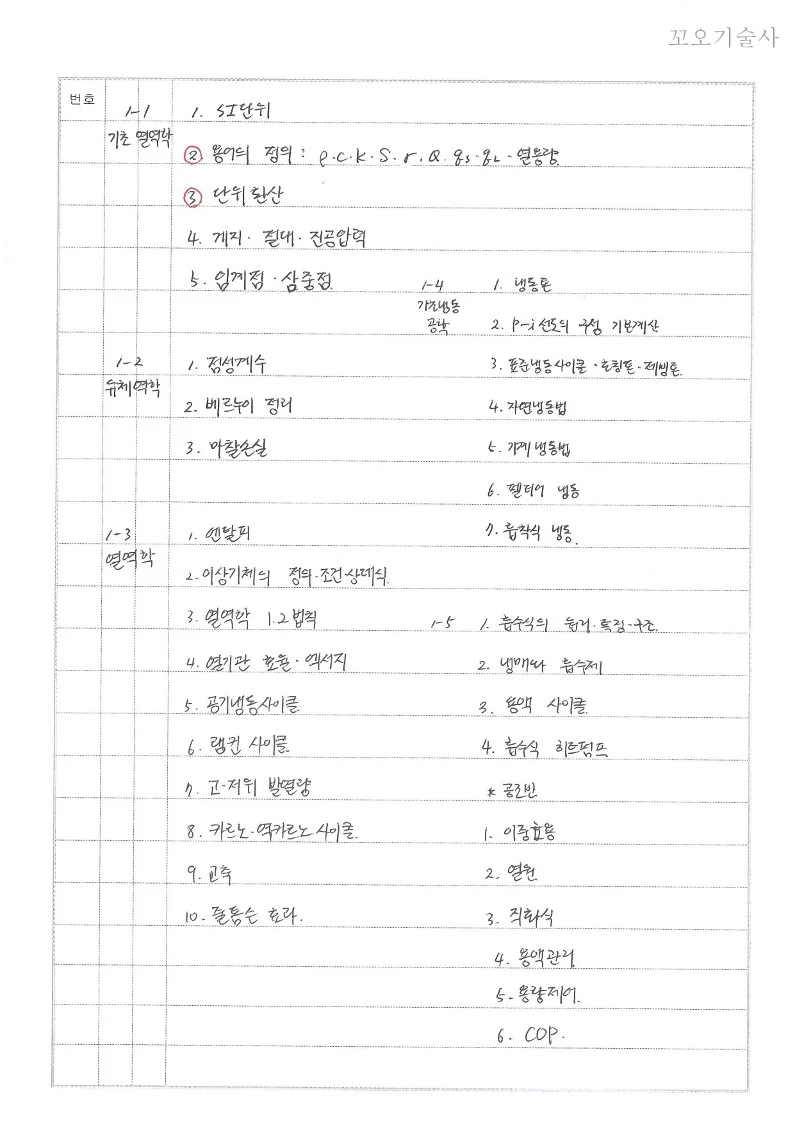 꼬오기술사
번호
1-1
기초 열역학
1. SI단위
② 용어의 정의 : ρ.c.k.S.r.Q.qs.qL.열용량
③ 단위환산
4. 게지. 절대. 진공압력
5. 임계점. 삼중점
1-2
유체역학
1. 점성계수
2. 베르누이 정리
3. 마찰손실
1-3
열역학
1. 엔탈피
2. 이상기체의 정의.조건.상태식
3. 열역학 1.2법칙
4. 열기관 효율. 엑서지
5. 공기냉동사이클
6. 랭킨 사이클
7. 고.저위 발열량
8. 카르노.역카르노 사이클
9. 교축
10. 줄톰슨 효과.
1-4
기초냉동
공학
1. 냉동톤
2. p-i 선도의 구성 기본계산
3. 표준냉동사이클.토킹톤.제빙톤
4. 자연냉동법
5. 기계냉동법
6. 펠티어 냉동
7. 흡착식 냉동.
1-5
1. 흡수식의 원리.특징.구조
2. 냉매와 흡수제
3. 용액 사이클
4. 흡수식 히트펌프
* 공조반
1. 이중효용
2. 열원
3. 직화식
4. 용액관리
5. 용량제어.
6. COP.